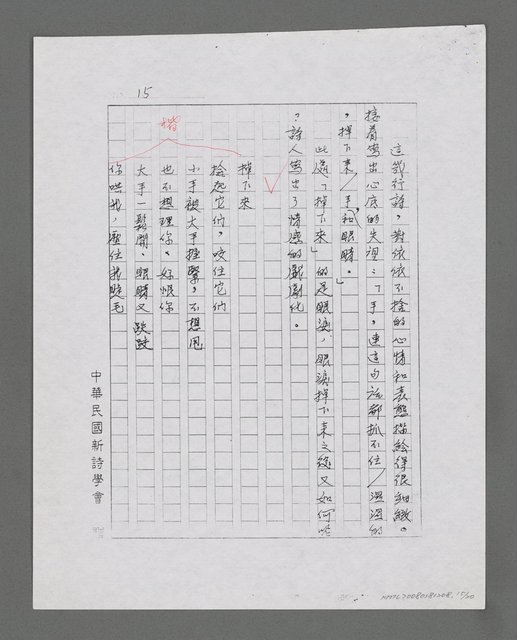 15
這幾行詩，對依依不捨的心情和表態描繪得很細緻。
接着寫出心底的失視：「手，連這句話都抓不住／濕濕的
，掉下來／手和眼睛。」
此處「掉下來」的是眼淚，眼淚掉下來之後又如何呢
？詩人寫出了情感的戲劇化。
楷
掉下來
撿起它們，咬住它們
小手被大手握緊，不想甩
也不想理你、好恨你
大手一鬆開、眼睛又跌跤
你哄我，壓住我睫毛
中華民國新詩學會
NMTL20080181208. 15/20